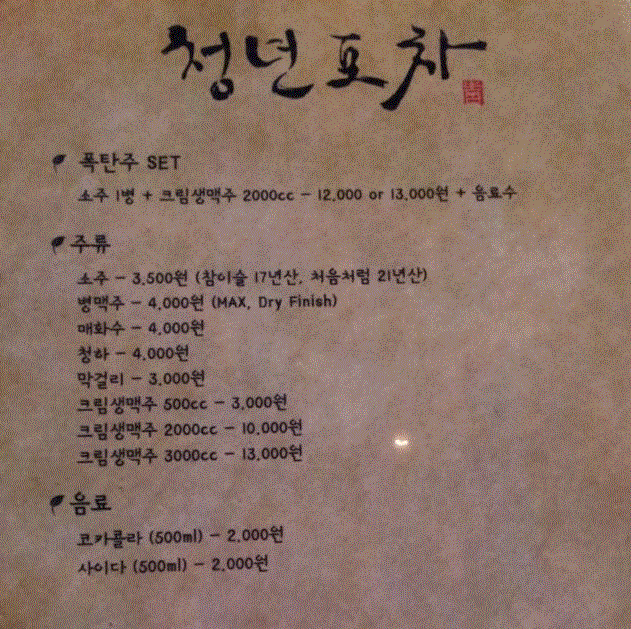 청년포차
폭탄주 SET
소주 1병 + 크림생맥주 2000cc - 12,000 or 13,000원 + 음료수
주류
소주 - 3,500원 (참이슬 17년산, 처음처럼 21년산)
병맥주 - 4,000원 (MAX, Dry Finish)
매화수 - 4,000원
청하 - 4,000원
막걸리 - 3,000원
크림생맥주 500cc - 3,000원
크림생맥주 2000cc - 10,000원
크림생맥주 3000cc - 13,000원
음료
코카콜라 (500ml) - 2,000원
사이다 (500ml) - 2,000원